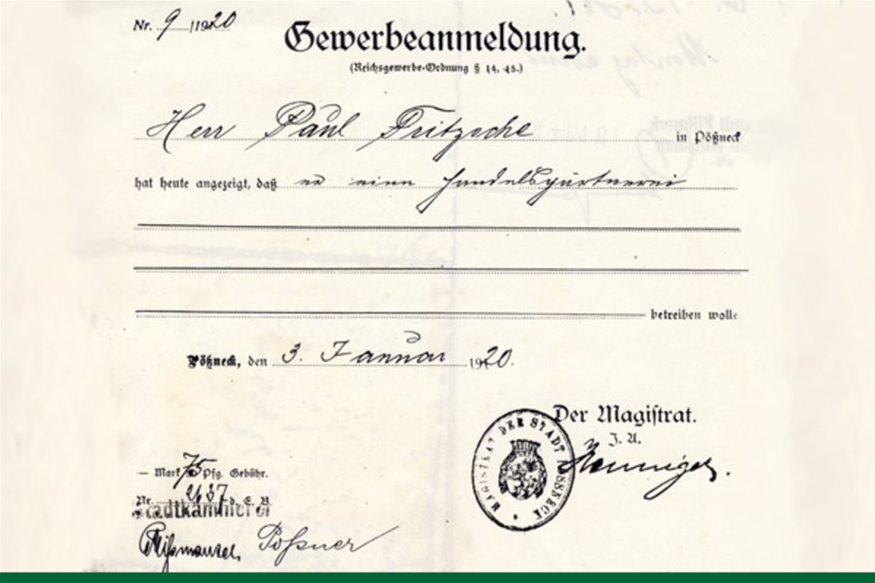 Nr. 9 /1920
Gewerbeanmeldung.
(Reichsgewerbe-Ordnung § 14. 15.)
Herr Paul Fritzsche in Pößneck
hat heute angezeigt, daß er eine Handelsgärtnerei
betreiben wolle
Pößneck, den 3. Januar 1920.
Der Magistrat.
J. A.
MAGISTRAT DER STADT POESSNECK
— Mark 75 Pfg. Gebühr.
Nr. 2657 d. E. B.
Stadtkämmerei
Poßner